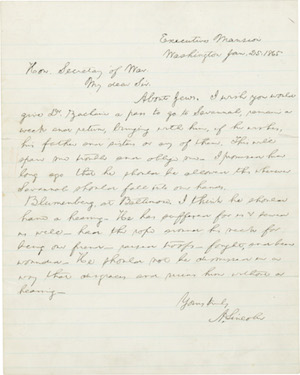 Executive Mansion
Washington Jan. 25. 1865
Hon. Secretary of War.
My dear Sir.
About Jews. I wish you would
give Dr. Zacharie a pass to go to Savannah, remain a
week and return, bringing with him, if he wishes,
his father and sisters or any of them. This will
spare me trouble and oblige me. I promised him
long ago that he should be allowed this whenever
Savannah should fall into our hands.
Blumenberg, at Baltimore. I think he should
have a hearing. He has suffered for us & served
us well had the rope around his neck for
being our friend raised troops fought, and been
wounded. He should not be dismissed in a
way that disgraces and ruins him without a
hearing.
Yours truly
A. Lincoln